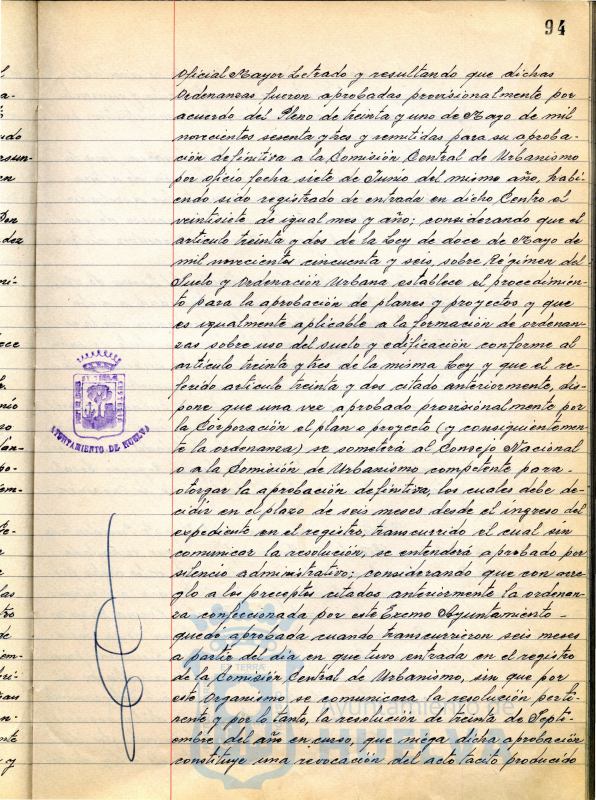 94
Oficial Mayor Letrado y resultando que dichas
Ordenanzas fueron aprobadas provisionalmente por
acuerdo del Pleno de treinta y uno de Mayo de mil
novecientos sesenta y tres y remitidas para su aproba-
ción definitiva a la Comisión Central de Urbanismo
por oficio fecha siete de Junio del mismo año, habi-
endo sido registrado de entrada en dicho Centro el
veintisiete de igual mes y año; considerando que el
artículo treinta y dos de la Ley de doce de Mayo de
mil novecientos cincuenta y seis, sobre Régimen del
Suelo y Ordenación Urbana establece el procedimien-
to para la aprobación de planes y proyectos y que
es igualmente aplicable a la formación de ordenan-
zas sobre uso del suelo y edificación conforme al
artículo treinta y tres de la misma Ley y que el re-
ferido artículo treinta y dos citado anteriormente, dis-
pone que una vez aprobado provisionalmente por
la Corporación el plan o proyecto (y consiguientemen-
te la ordenanza) se someterá al Consejo Nacional
o a la Comisión de Urbanismo competente para
otorgar la aprobación definitiva, los cuales debe de-
cidir en el plazo de seis meses desde el ingreso del
expediente en el registro, transcurrido el cual sin
comunicar la resolución, se entenderá aprobado por
silencio administrativo; considerando que con arre-
glo a los preceptos citados anteriormente la ordenan-
za confeccionada por este Excmo Ayuntamiento
quedó aprobada cuando transcurrieron seis meses
a partir del día en que tuvo entrada en el registro
de la Comisión Central de Urbanismo, sin que por
este Organismo se comunicara la resolución perti-
nente y por lo tanto, la resolución de treinta de Septi-
embre del año en curso, que niega dicha aprobación
constituye una revocación del acto tácito producido
AYUNTAMIENTO DE HUELVA
Ayuntamiento de
HUELVA